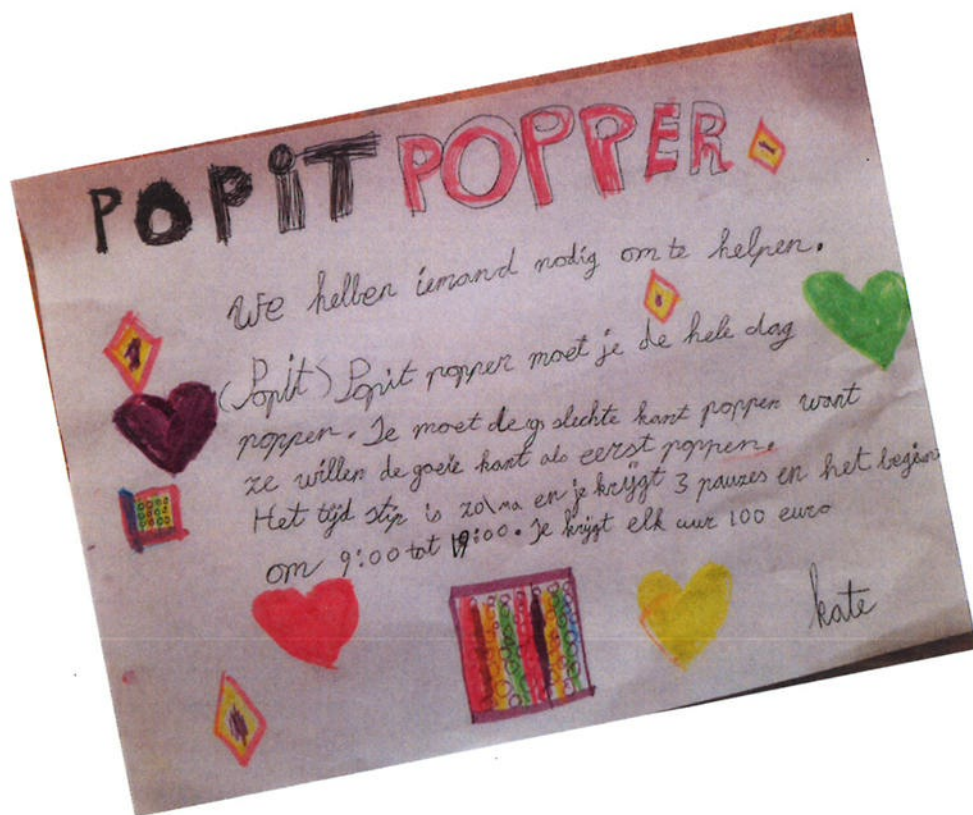 POPIT POPPER
We hebben iemand nodig om te helpen.
(Popit) Popit popper moet je de hele dag
poppen. Je moet de slechte kant poppen want
ze willen de goeie kant als eerst poppen.
Het tijd stip is zo\ma en je krijgt 3 pauzes en het begint
om 9:00 tot 19:00. Je krijgt elk uur 100 euro
kate